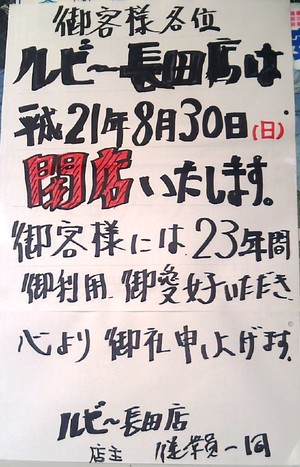 御客様各位
ルビー長田店は
平成21年8月30日(日)
閉店いたします。
御客様には23年間
御利用 御愛好いただき
心より御礼申し上げます。
ルビー長田店
店主 従業員一同